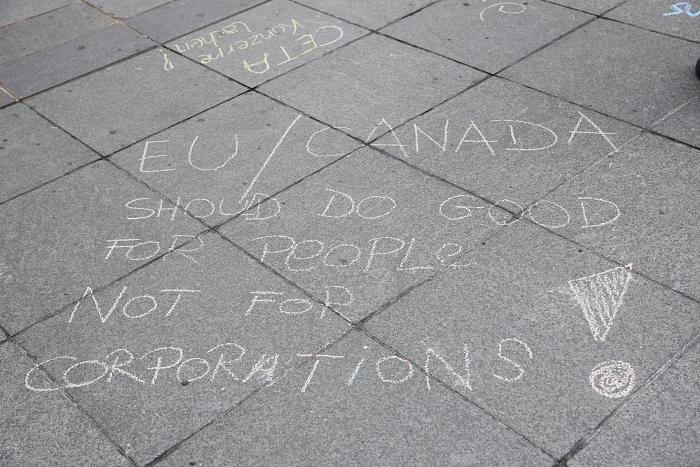 CETA
Konzerne
lachen!
SU
EU/CANADA
SHOUD DO GOOD
FOR PEOPLE
NOT FOR
CORPORATIONS !